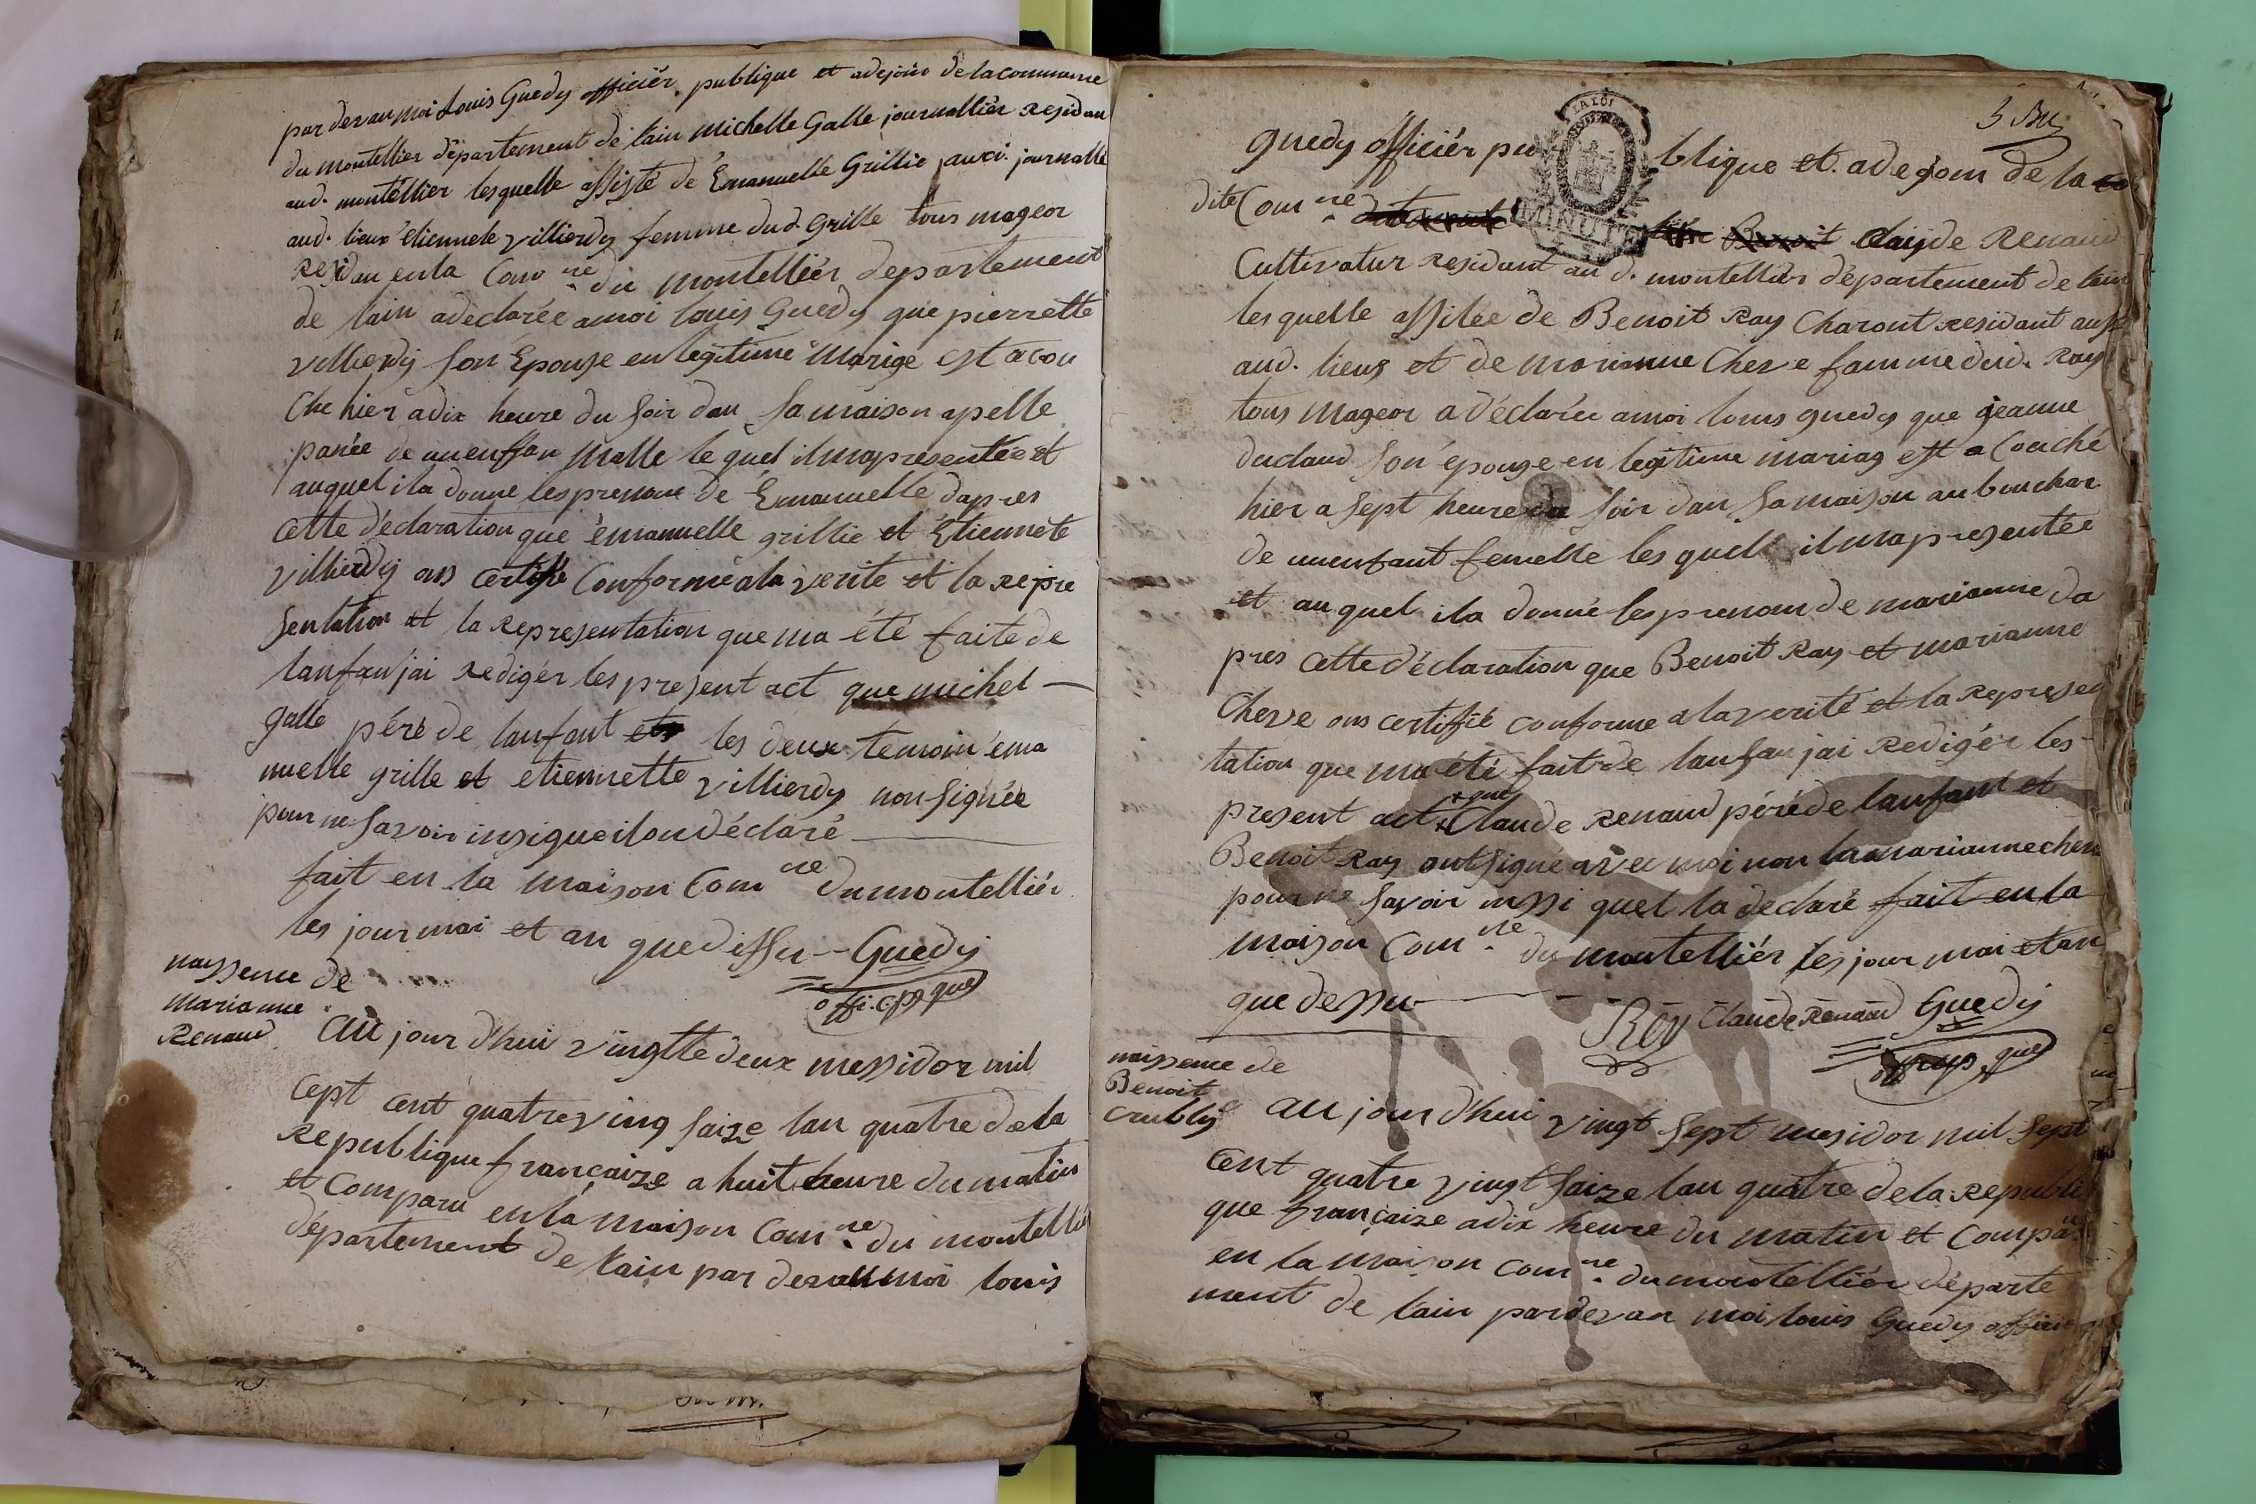 par devan moi Louis Guedy officiér publique et adejoin de la commune
du montellier département de lain michelle Galle journalliér Residan
aud. montéllier lesquelle assisté de Emanuelle Grillie aussi journallié
aud. lieux étiennete villierdy femme dud. Grille tous mageor
Residan en la Com ne du montelliér departement
de lain a declarée a moi louis Guedy que pierrette
villierdy son Epouse en legitime marige est a cou
che hiér a dix heure du soir dan sa maison apelle
panée de un enffan malle le quel il ma presentée et
auquel il a donne les prenom de Emanuelle d'apres
cette déclaration que émanuelle grillie et Etiennete
villierdy ons certifié conforme a la verite et la repre
sentation et la representation que ma été faite de
lanfan jai redigér les present act que michel
galle pére de lanfant les deux temoin éma
nuelle grille et etiennette villierdy non signée
pour ne savoir insi que il on déclaré
fait en la maison Com ne du montelliér
les jour moi et an que dessu -- Guedy
offi. pp que
naissence de
marianne
Renaud
au jour d'hui vingtte deux messidor mil
cept cent quatre ving saize lan quatre de la
republique françaize a huit heure du matin
et comparu en la maison Com ne du montellié
département de lain par devan moi louis
5 Bu
LA LOI
MINUTE
guedy officiér pu blique et adejoin de la co
dite Com ne Benoit Claude Renaud
Cultivatur residant au d. montelliér département de lain
les quelle assitée de Benoit Ray Charont residant ausi
aud. lieux et de marianne Cheve famme dud. Ray
tous mageor a déclarée a moi louis guedy que jeanne
duclaud son épouze en legitime mariag est a couché
hier a sept heure du soir dan sa maison au bouchar
de un enfant femelle les quell il ma presentée
et au quel il a donné les prenom de marianne da
pres cette déclaration que Benoit Ray et marianne
Cheve ons certifié conforme a la verité et la represen
tation que ma été fait de lanfan jai redigér les
present act + que
Claude Renaud pére de lanfant et
Benoit Ray ont signé avec moi non la marianne cheve
pour ne savoir inssi quel la declaré fait en la
maison Com ne du montelliér les jour moi et an
que dessu
Rey Claude Renaud Guedy
naissence de
Benoit
Crubly
au jour d'hui vingt sept mesidor mil sept
cent quatre vingt saize lan quatre de la republi
que françaize a dix heure du matin et compa
en la maison com ne du montelliér départe
ment de lain par devan moi louis Guedy officié